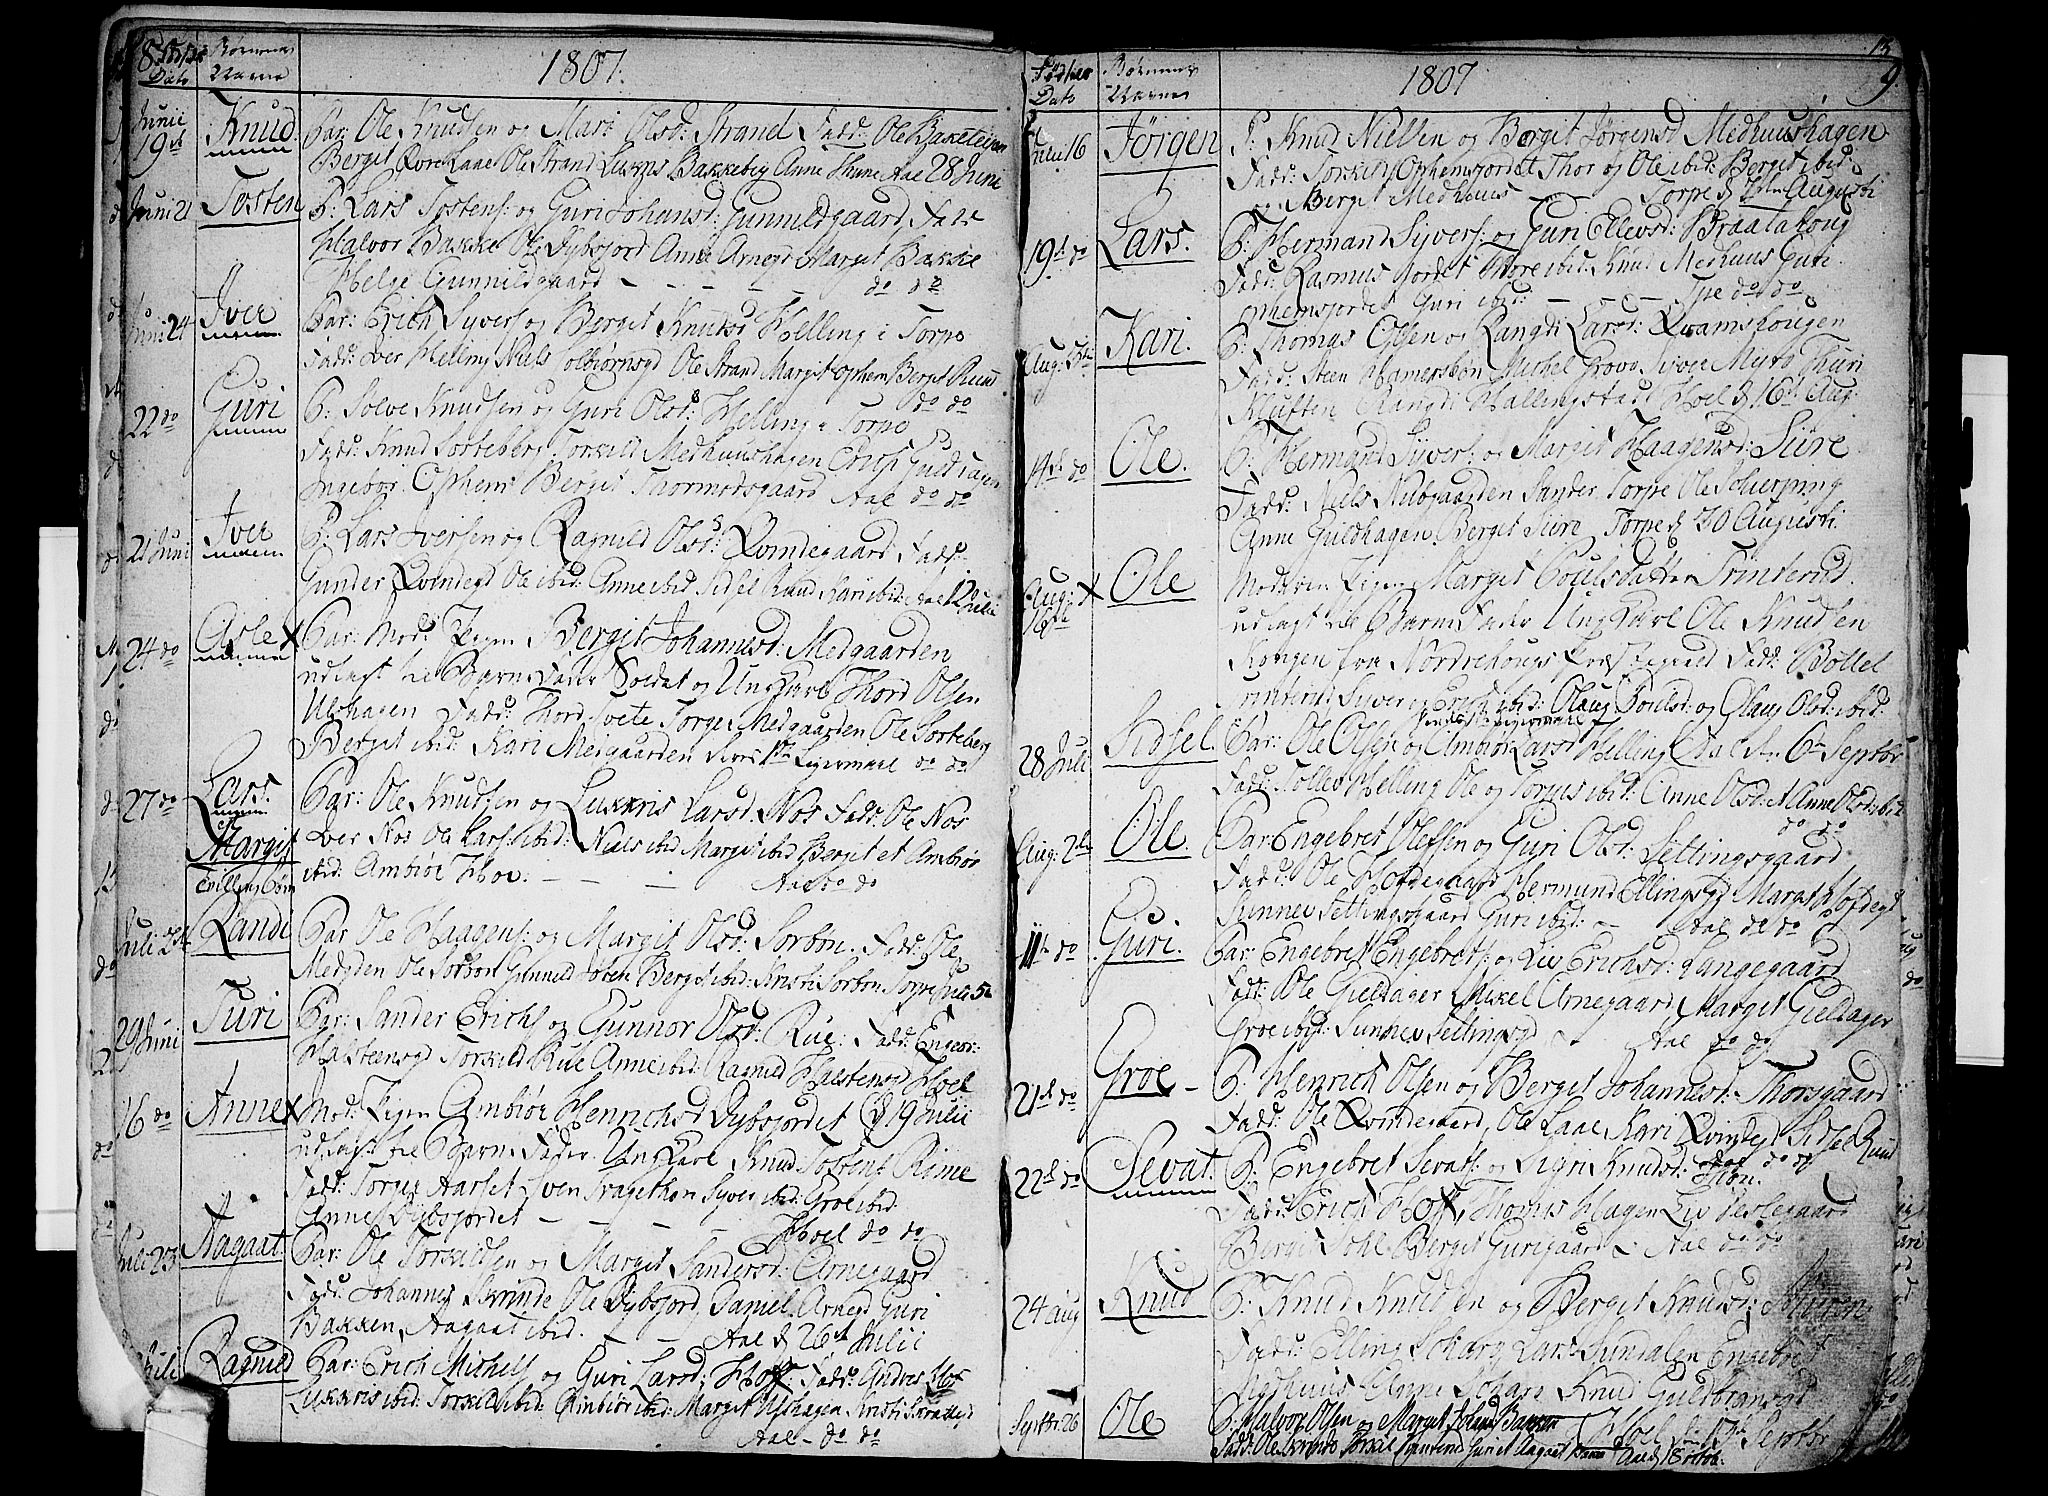 8. Fødsels Dato
Børnenes Navne
1807.
Junii 19de
Knud
Par: Ole Knudsen og Mari Olsd: Strand Fadd: Ole
Berget Ole Strand Anne Thune Aal 28 Junii
Juni 21
Tosten
P: Lars Tostens: og Guri Johansd: Gunnildgaard Fadd
Halvor Bakke Ole Dybsjord Anne Arnegd Margit Bakke
Helge Gunnildgaard - - - - do do
Juni 24
Iver
Par: Erich Syvers og Berget Knudsd Helling i Torpe
Fadd: Iver Helling Niels Ole Strand Margit Ophem Berget Ruud
do do
22 do
Guri
P: Solve Knudsen og Guri Olsd: Helling i Torpe
Fadd: Knud Sorteberg Torkild Medhuushagen
Ingebor Ophem Berget Thormodsgaard Aal do do
21 Juni
Iver
P: Lars Iversen og Ragnild Olsd: Qvindegaard Fadd:
Gunder Qvindegd Ole ibid: Anne ibid Sidsel Ruud Kari ibid: Aal 12 Julii
24 do
Asle X
Par: Mod: Pigen Bergit Johannesd: Medgaarden
udlagt til Barne Fader Soldat og Ung Karl Thord Olsen
Ulshagen Fadd: Thord Tveto Torger Medgaarden Ole Sorteberg
Berget ibid: Kari Meigaarden 1te Leiermaal do do
27 do
Lars.
Margit
Tvilling Børn
Par: Ole Knudsen og Lukkris Larsd: Nos Fadd: Ole Nos
Iver Nos Ole Larss ibid: Niels ibid Margit ibid Berget et Ambiør
ibid: Ambiør Hoe. - - - Aal do do
Juli 2de
Randi
Par Ole Haagens: og Margit Olsd: Sorbøn. Fadd: Ole
Medgden Ole Sorbøn Gunnild Berget ibid: Kristi Sorbøn Torpe Juli 5te
29 Juni
Turi
Par: Sander Erichs og Gunnor Olsd: Rue: Fadd: Engebr:
Halsteensgd Torkild Rue Anne ibid: Ragnild Halstensgd Hoel
16 do
Anne X
Mod: Pigen Ambiør Henrichsd Dybsjordet d 19 Julii
udlagt til Barne Fader Ung Karl Knud Tostens Rime
Fadd: Torger Aarset Sven Tragethon Syver ibid: Groe ibid.
Anne Dybsjordet - - - - Hoel do do
Juli 23
Aagaat.
Par: Ole Torkildsen og Margit Sandersd: Arnegaard
Fadd: Johannes Skrinde Ole Dybsjord, Daniel Arnegd Guri
Bakken, Aagaat ibid. - - Aal d 26de Julii
Juli
Ragnild
Par: Erich Michels og Guri Larsd: Hoff. Fadd: Andres Hof
Lukkris ibid: Torkild ibid: Ambiør ibid: Margit Ulshagen Kristi
Aal - do do
13
9.
Fødsels Dato
Børnenes Navne
1807
Julii 16
Jørgen
P: Knud Nielsen og Bergit Jørgensd Medhuushagen
Fadd: Torkild Ophemsjordet Thor og Ole ibid: Berget ibid:
og Berget Medhuus Torpe d Augusti
19de do
Lars.
P: Hermand Syvers: og Guri Ellevsd: Braatahoug
Fadd: Rasmus Jordet Thore ibid: Knud Medhuus Guri
Ophemsjordet Guri ibid: - - - Tpe do do
Aug:
Kari.
P: Thomas Olsen og Rangdi Larsd: Qvamshougen
Fadd: Steen Hamersbøn Michel Grove Syver Myro Thuri
Kluften Rangdi Hallingstad Hoel d 16de Aug:
14de do
Ole.
P: Hermand Syvers: og Margit Haagensd: Siire
Fadd: Niels Nubgaarden Sander Torpe Ole Scherping
Anne Guldhagen Berget Siire Torpe d 30 Augusti
Aug: 16de X
Ole
Moderen Pigen Margit Poulsdatter Trinterud
udlagt til Barne Fader Ung Karl Ole Knudsen
Kongen fra Nordrehougs Præstegield Fadd: Bottel
Trinterud Syver og Erich ibid: Olaug Toresd: og Olaug Olsd: ibid:
28 Juli
Sidsel.
Par: Ole Olsen og Ambiør Larsd Helling Aal d 6te Septbr
Fadd: Tollev Helling Ole og Torgus ibid: Anne Olsd: et Anne Olsd: ibid
Aug: 2de
Ole
Par: Engebret Olefsen og Guri Olsd: Settingsgaard do do
Fadd: Ole Hofdegaard Hermund Ellingsgd Margit Hofdegd
Sunnev Settingsgaard Guri ibid: - Aal do do
11te do
Guri.
Par: Engebret Engebrets: og Liv Erichsd: Langegaard
Fadd: Ole Gieldager Mikel Arnegaard, Margit Gieldager
Groe ibid: Sunnev Settingsgd - Aal do do
21de do
Groe -
P: Henrich Olsen og Berget Johannesd: Thorsgaard
Fadd: Ole Qvindegaard, Ole Laae, Kari Qvindegd Sidsel Ruud
do do
22de do
Sevat.
P: Engebret Sevats: og Sigri Knudsd: Thon.
Fadd: Erich Hoff, Thomes Hagen Liv Perslegaard
Berget Sohl Berget Gurigaard - Aal do do
24 aug
Knud
P: Knud Knudsen og Berget Knudsd: Muren
Fadd: Elling Skarg Lars Sundalen Engebor
Medhuus Anne Skarg Knud Guldbransgd
Hoel d. 13de Septbr
Septbr: 26
Ole
P: Halvor Olsen og Margit Johansd Bakken
Fadd: Ole Skrindo Torkil Guri et Aagaat Aal d 18 octob: